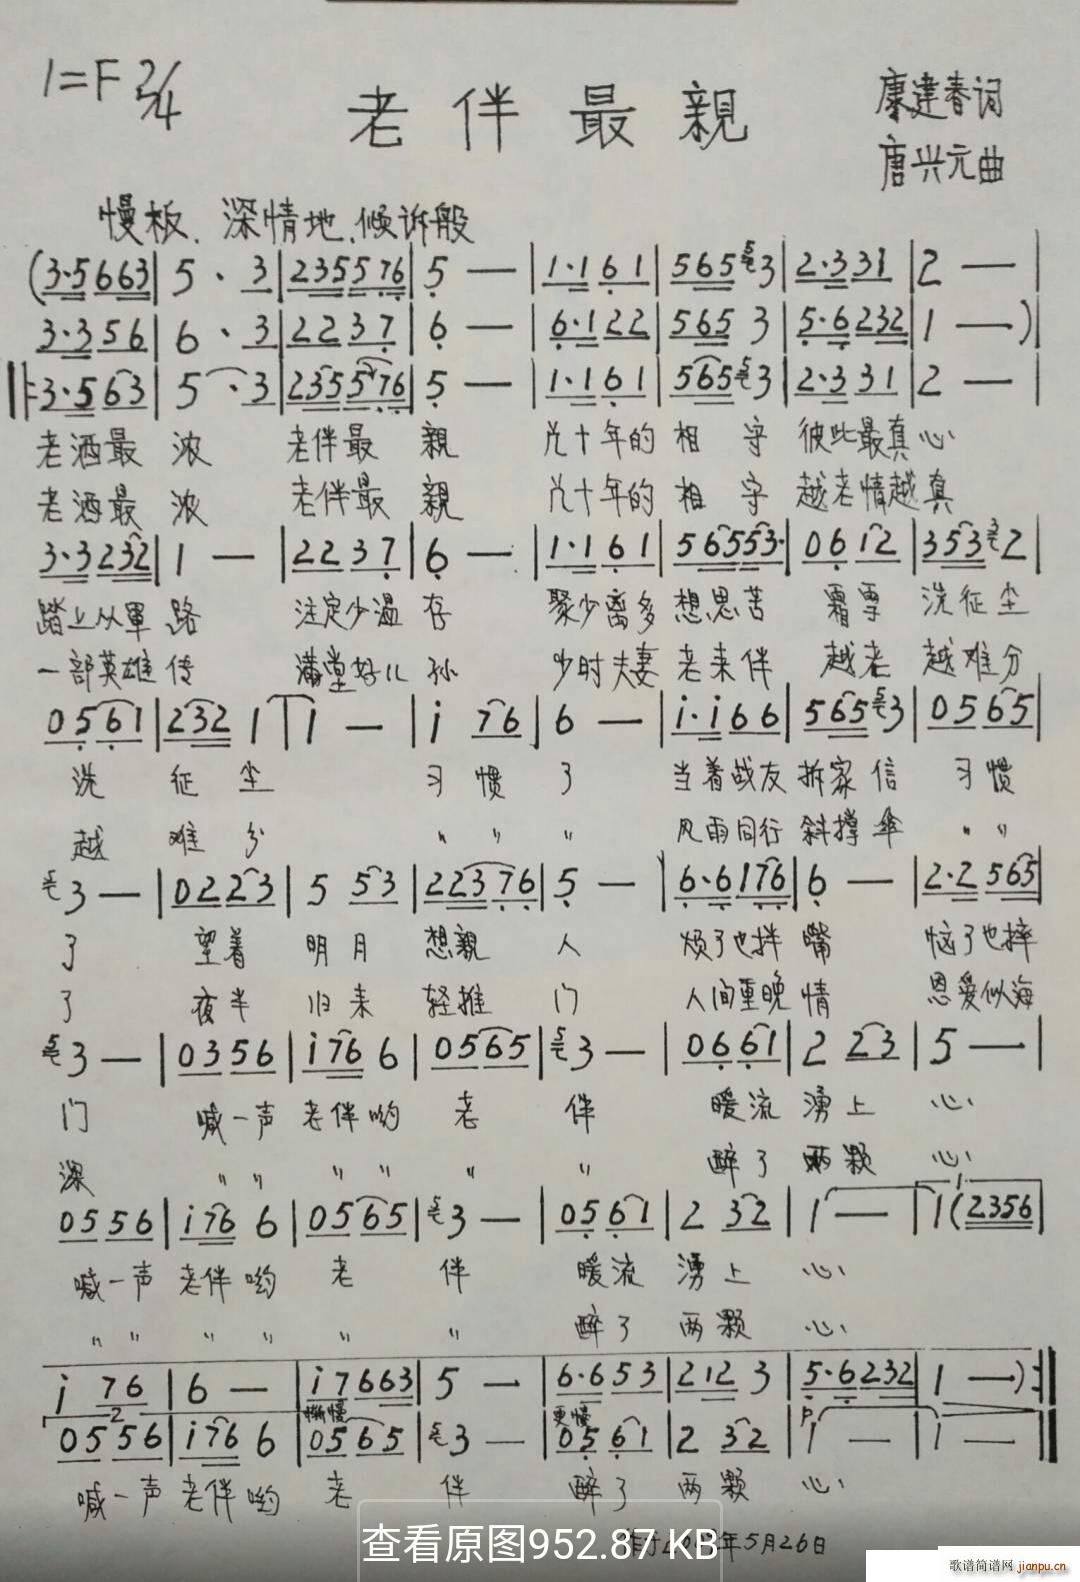 1=F 2/4
老伴最親
康建春词
唐兴元曲
慢板、深情地、倾诉般
(3·5 663 | 5 · 3 | 235576 | 5 — | 1·1 61 | 565 3 | 2·3 31 | 2 — |
3·3 56 | 6 · 3 | 22 37 | 6 — | 6·1 22 | 565 3 | 5·6 232 | 1 — ) |
‖: 3·5 63 | 5 · 3 | 235576 | 5 — | 1·1 61 | 565 3 | 2·3 31 | 2 — |
老酒最 浓 老伴最 親 几十年的 相 守 彼此最真心
老酒最 浓 老伴最 親 几十年的 相 守 越老情越真
3·3 232 | 1 — | 22 37 | 6 — | 1·1 61 | 56553· | 06 12 | 353 2 |
踏上从軍 路 注定少温 存 聚少离多 想思苦 霜雪 洗征尘
一部英雄 传 满堂好儿 孙 少时夫妻 老来伴 越老 越难分
05 61 | 232 1 | 1 — | i 76 | 6 — | i·i 66 | 565 3 | 05 65 |
洗 征 尘 习 惯 了 当着战友 拆家 信 习 惯
越 难 分 〃 〃 〃 风雨同行 斜撑 伞 〃 〃
3 — | 02 23 | 5 53 | 22376 | 5 — | 6·6 176 | 6 — | 2·2 565 |
了 望着 明月 想親 人 烦了也拌 嘴 恼了也摔
了 夜半 归来 轻推 门 人间重晚 情 恩爱似海
3 — | 03 56 | i76 6 | 05 65 | 3 — | 06 61 | 2 23 | 5 — |
门 喊一声 老伴哟 老 伴 暖流 湧上 心
深 〃 〃 〃 〃 〃 〃 醉了 两颗 心
05 56 | i76 6 | 05 65 | 3 — | 05 61 | 2 32 | 1 — | 1 (2356 |
喊一声 老伴哟 老 伴 暖流 湧上 心
〃 〃 〃 〃 〃 〃 醉了 两颗 心
i 76 | 6 — | i7663 | 5 — | 6·6 53 | 212 3 | 5·6 232 | 1 — ) :‖
渐慢 更慢
05 56 | i76 6 | 05 65 | 3 — | 05 61 | 2 32 | 1 — | 1 — ‖
喊一声 老伴哟 老 伴 醉了 两颗 心
年5月26日
查看原图952.87 KB
歌谱简谱网 jianpu.cn